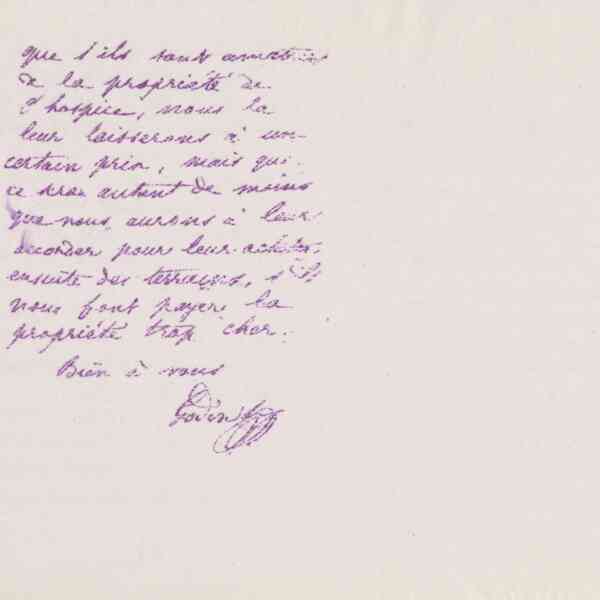 que s'ils sont amateurs
de la propriété de
l'hospice, nous la
leur laisserons à un
certain prix, mais que
ce sera autant de moins
que nous aurons à leur
accorder pour leur acheter
ensuite des terrains, s'ils
nous font payer la
propriété trop cher.
Bien à vous
Godin